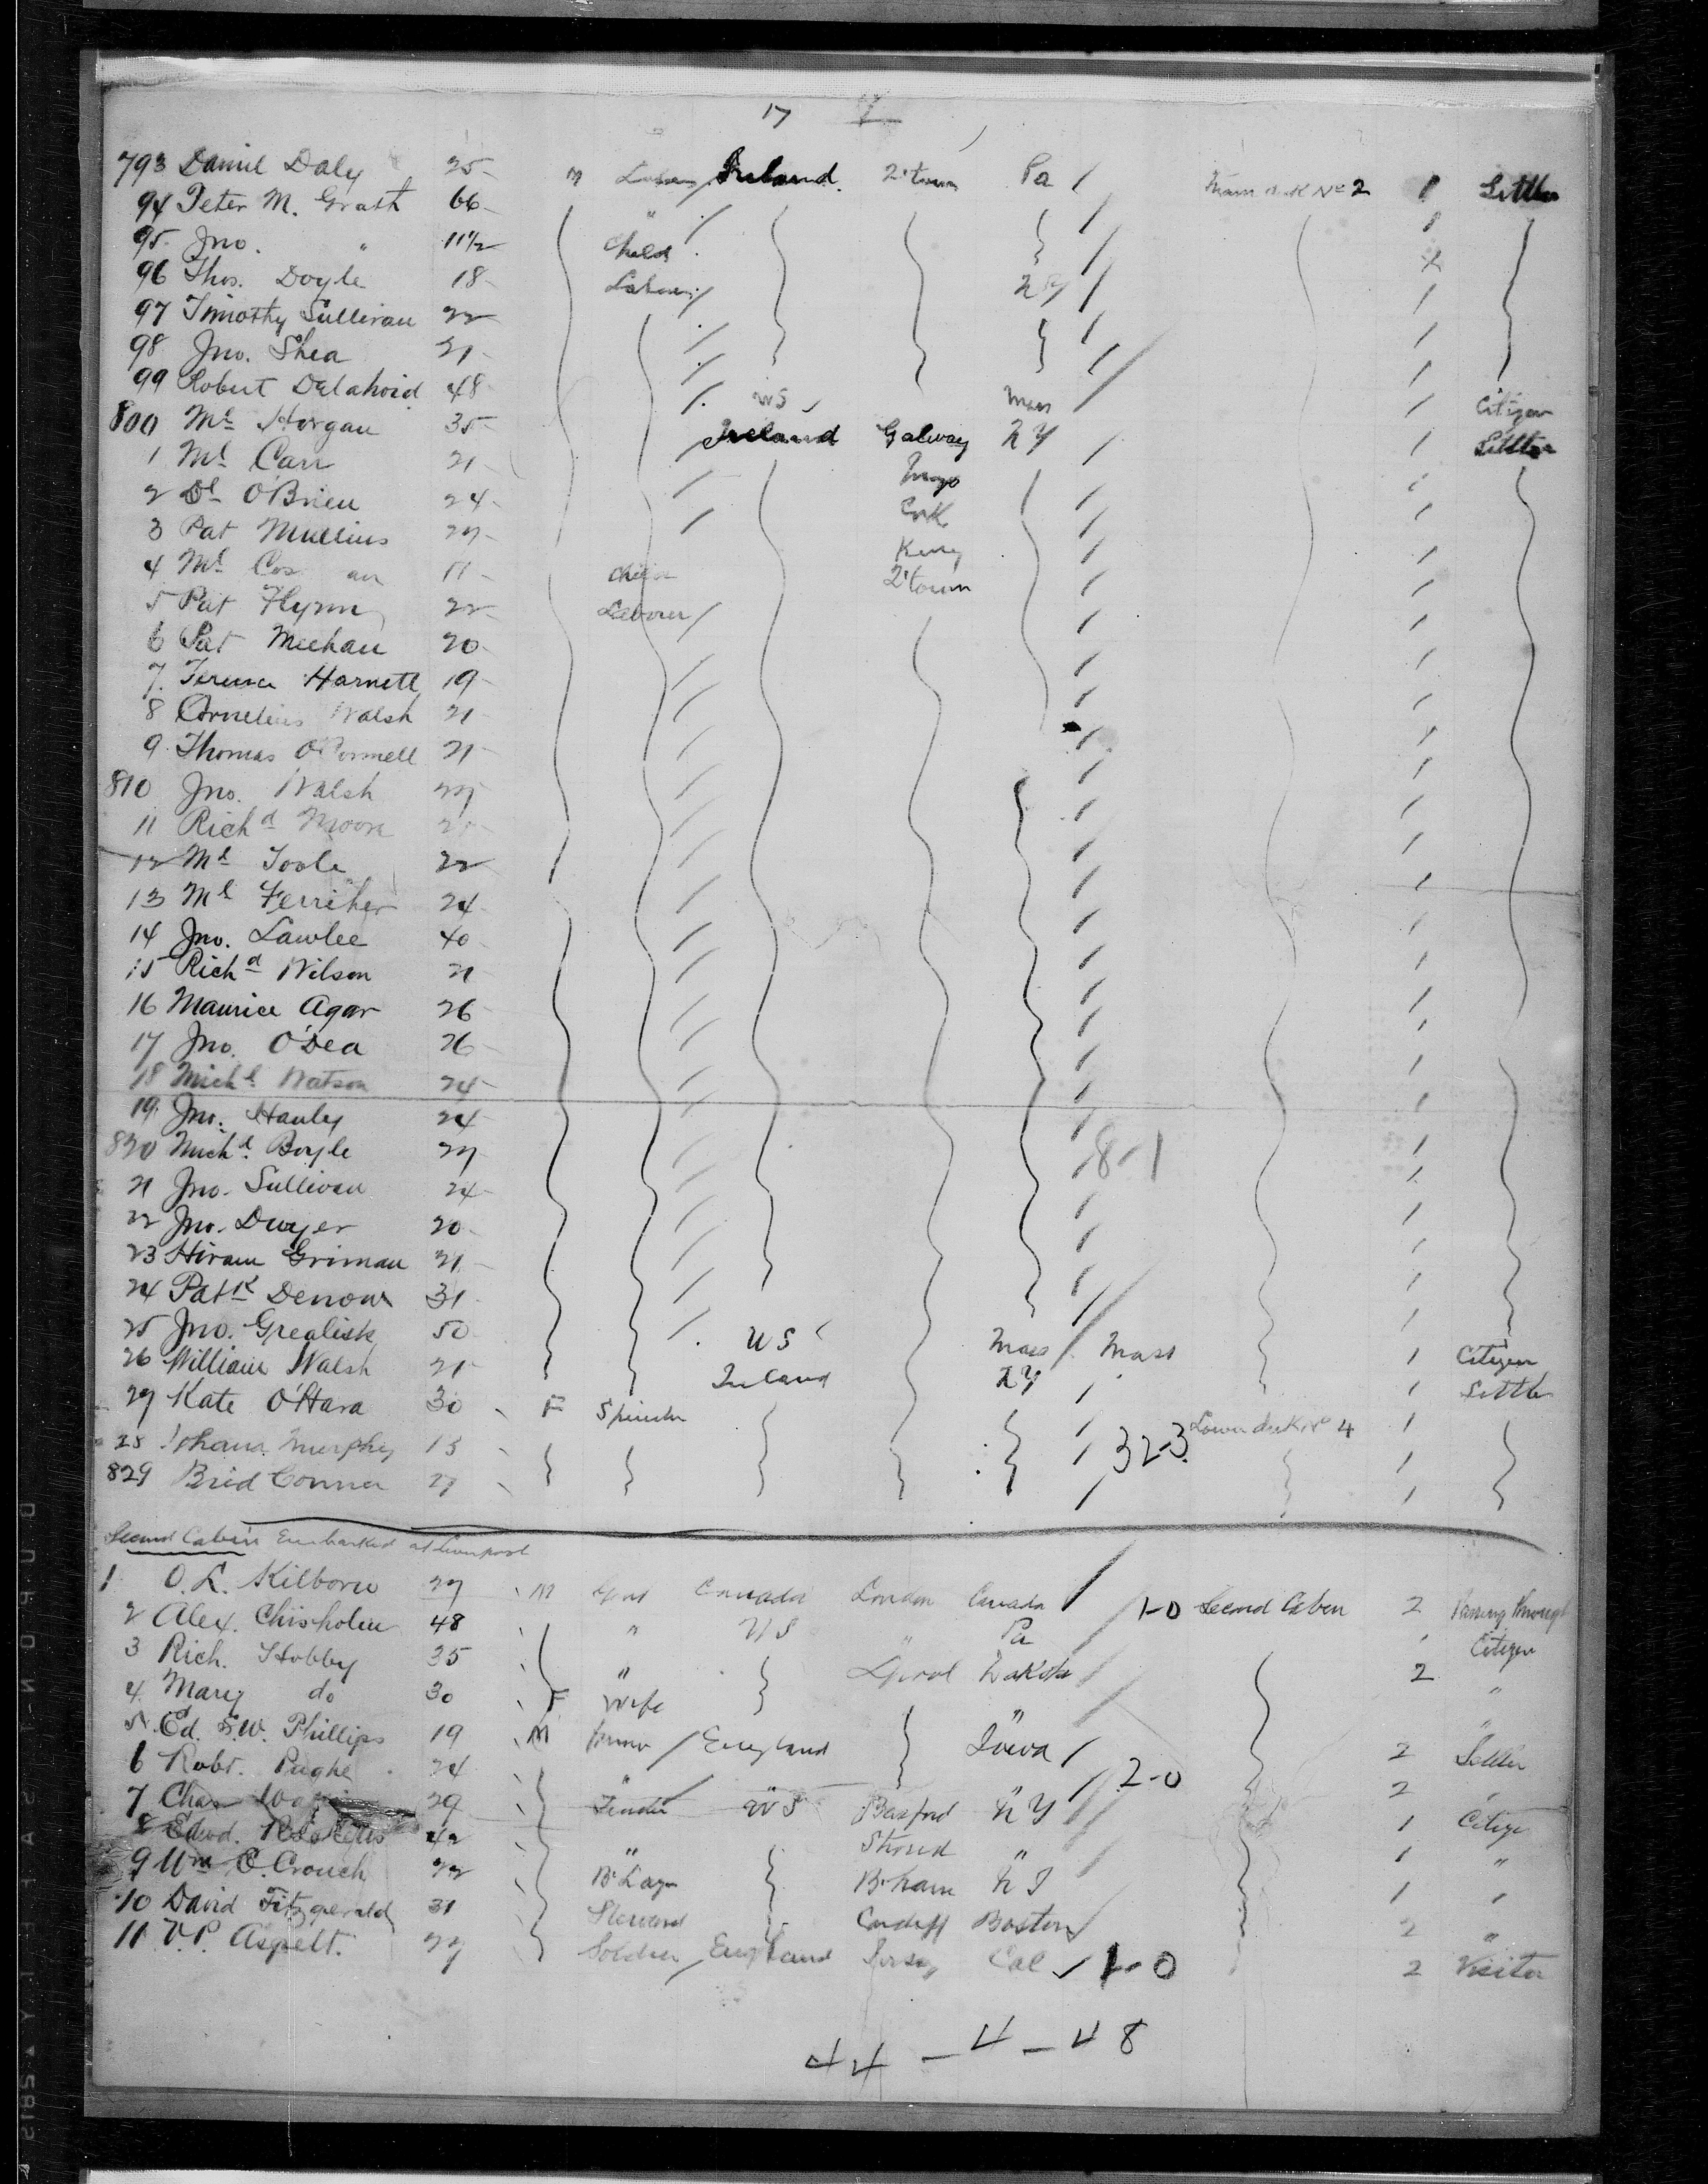 17
793 Daniel Daly 25 M Ireland 2'town Pa 2 1 Settler
94 Peter M. Grath 66 "
95 Jno. " 11½ Child
96 Thos. Doyle 18 Laborer NY
97 Timothy Sullivan 22
98 Jno. Shea 21
99 Robert Delahoid 48 US Mass 1 Citizen
800 Ml Horgan 35 Ireland Galway NY 1 Settler
1 Ml Carr 21
2 Dl O'Brien 24 Cork
3 Pat Mullins 27 Kerry
4 Ml 11 Child 2'town
5 Pat Flynn 22 Laborer
6 Pat Meehan 20
7 Terence Harnett 19
8 Cornelius Walsh 21
9 Thomas O'Connell 21
810 Jno. Walsh 27
11 Richd Moore
12 Ml Toole 22
13 Ml Ferriher 24
14 Jno. Lawlee 40
15 Richd Wilson 21
16 Maurice Agar 26
17 Jno. O'Dea 26
18 Michl Watson 24
19 Jno. Hanley 24
820 Michl Boyle 27 8-1
21 Jno. Sullivan 24
22 Jno. Dwyer 20
23 Hiram Griman 21
24 Patk 31
25 Jno. Grealish 50 US Mass Mass 1 Citizen
26 William Walsh 21 Ireland NY 1 Settler
27 Kate O'Hara 30 F Spinster
28 Murphy 13 32-3 Lower deck No 4 1
829 Brid Connor 27
Second Cabin Embarked at Liverpool
1 O. L. Kilborn 27 M Canada London Canada 1-0 Second Cabin 2 Passing through
2 Alex. Chisholm 48 " US " Pa Citizen
3 Rich. Hobby 35 " L'pool Dakota 2 "
4 Mary do 30 F Wife " "
5 Ed. Phillips 19 M England Iowa 2 Settler
6 Robt. Pughe 24 " " 2-0 2
7 Chas 29 US NY 1 Citizen
8 Edwd. 42 " Stroud " 1 "
9 Wm C. Crouch 22 B'ham 1
10 David Fitzgerald 31 Steward Cardiff Boston 2 "
11 V. P. Aspelt. 27 Soldier England Jersey Cal 1-0 2 Visitor
44 - 4 - 48